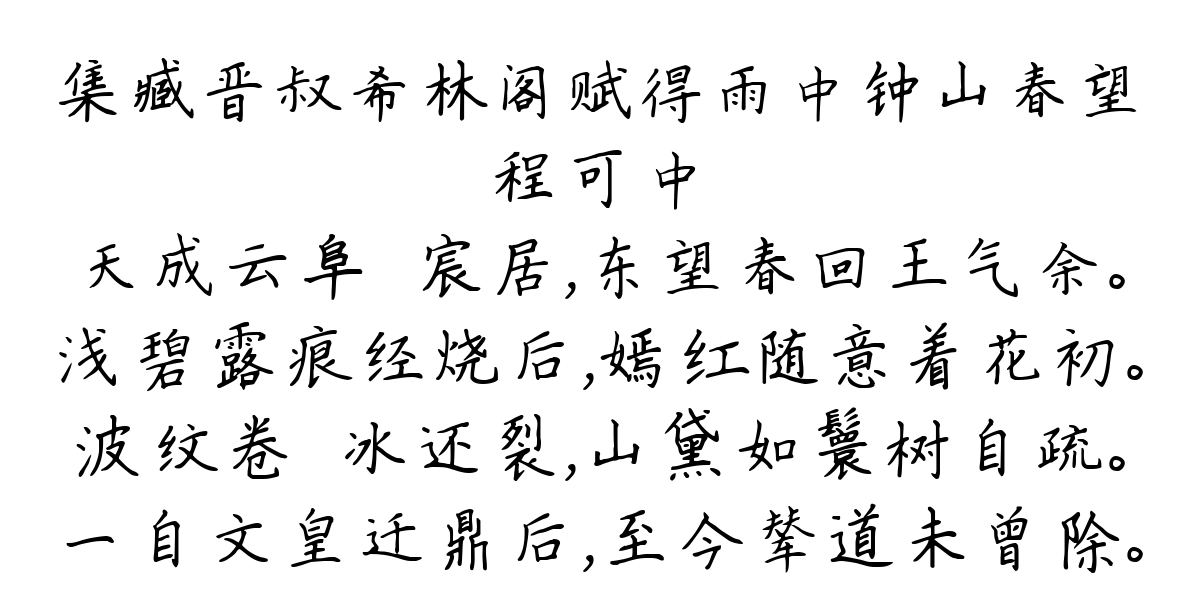 集臧晋叔希林阁赋得雨中钟山春望
程可中
天成云阜 宸居,东望春回王气余。
浅碧露痕经烧后,嫣红随意着花初。
波纹卷 冰还裂,山黛如鬟树自疏。
一自文皇迁鼎后,至今辇道未曾除。